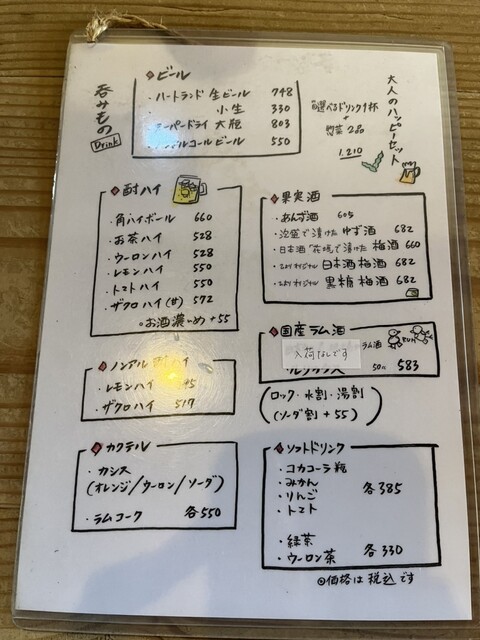 呑みもの
Drink
ビール
・ハートランド 生ビール 748
小生 330
ーパードライ 大瓶 803
ルコールビール 550
大人のハッピーセット
選べるドリンク1杯
+
惣菜2品
1.210
酎ハイ
・角ハイボール 660
・お茶ハイ 528
・ウーロンハイ 528
・レモンハイ 550
・トマトハイ 550
・ザクロハイ(甘) 572
○お酒濃いめ +55
果実酒
・あんず酒 605
・泡盛で漬けた ゆず酒 682
・日本酒"花垣"で漬けた 梅酒 660
日本酒梅酒 682
黒糖梅酒 682
ノンアル ハイ
・レモンハイ 45
・ザクロハイ 517
国産ラム酒
ラム酒
RUM
入荷なしです
583
(ロック・水割・湯割)
(ソーダ割 +55)
カクテル
・カシス
(オレンジ/ウーロン/ソーダ)
・ラムコーク 各550
ソフトドリンク
・コカコーラ瓶
・みかん
・りんご 各385
・トマト
・緑茶
・ウーロン茶 各330
◎価格は税込です